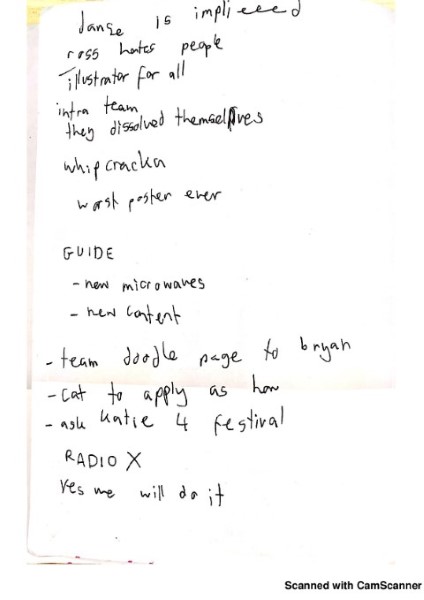 is implieeed
ross hates people
illustrator for all
intra team
they dissolved themselves
whip cracka
worst poster ever
GUIDE
- new microwaves
- new content
- team doodle page to bryan
- cat to apply as how
- ask katie 4 festival
RADIO X
Yes me will do it
Scanned with CamScanner